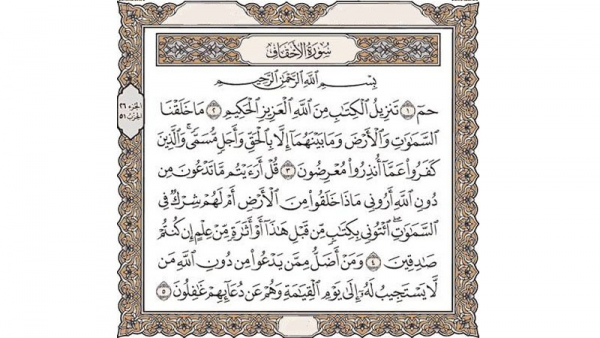 سُورَةُ الأَحْقَافِ
بِسْمِ اللَّهِ الرَّحْمَٰنِ الرَّحِيمِ
حمٓ ١ تَنزِيلُ الْكِتَابِ مِنَ اللَّهِ الْعَزِيزِ الْحَكِيمِ ٢ مَا خَلَقْنَا
السَّمَاوَاتِ وَالْأَرْضَ وَمَا بَيْنَهُمَا إِلَّا بِالْحَقِّ وَأَجَلٍ مُّسَمًّى ۚ وَالَّذِينَ
كَفَرُوا عَمَّا أُنذِرُوا مُعْرِضُونَ ٣ قُلْ أَرَءَيْتُم مَّا تَدْعُونَ مِن
دُونِ اللَّهِ أَرُونِي مَاذَا خَلَقُوا مِنَ الْأَرْضِ أَمْ لَهُمْ شِرْكٌ فِي
السَّمَاوَاتِ ۖ ائْتُونِي بِكِتَابٍ مِّن قَبْلِ هَٰذَا أَوْ أَثَارَةٍ مِّنْ عِلْمٍ إِن كُنتُمْ
صَادِقِينَ ٤ وَمَنْ أَضَلُّ مِمَّن يَدْعُوا مِن دُونِ اللَّهِ مَن
لَّا يَسْتَجِيبُ لَهُ إِلَىٰ يَوْمِ الْقِيَامَةِ وَهُمْ عَن دُعَائِهِمْ غَافِلُونَ ٥
الجزء ٢٦
الحزب ٥١